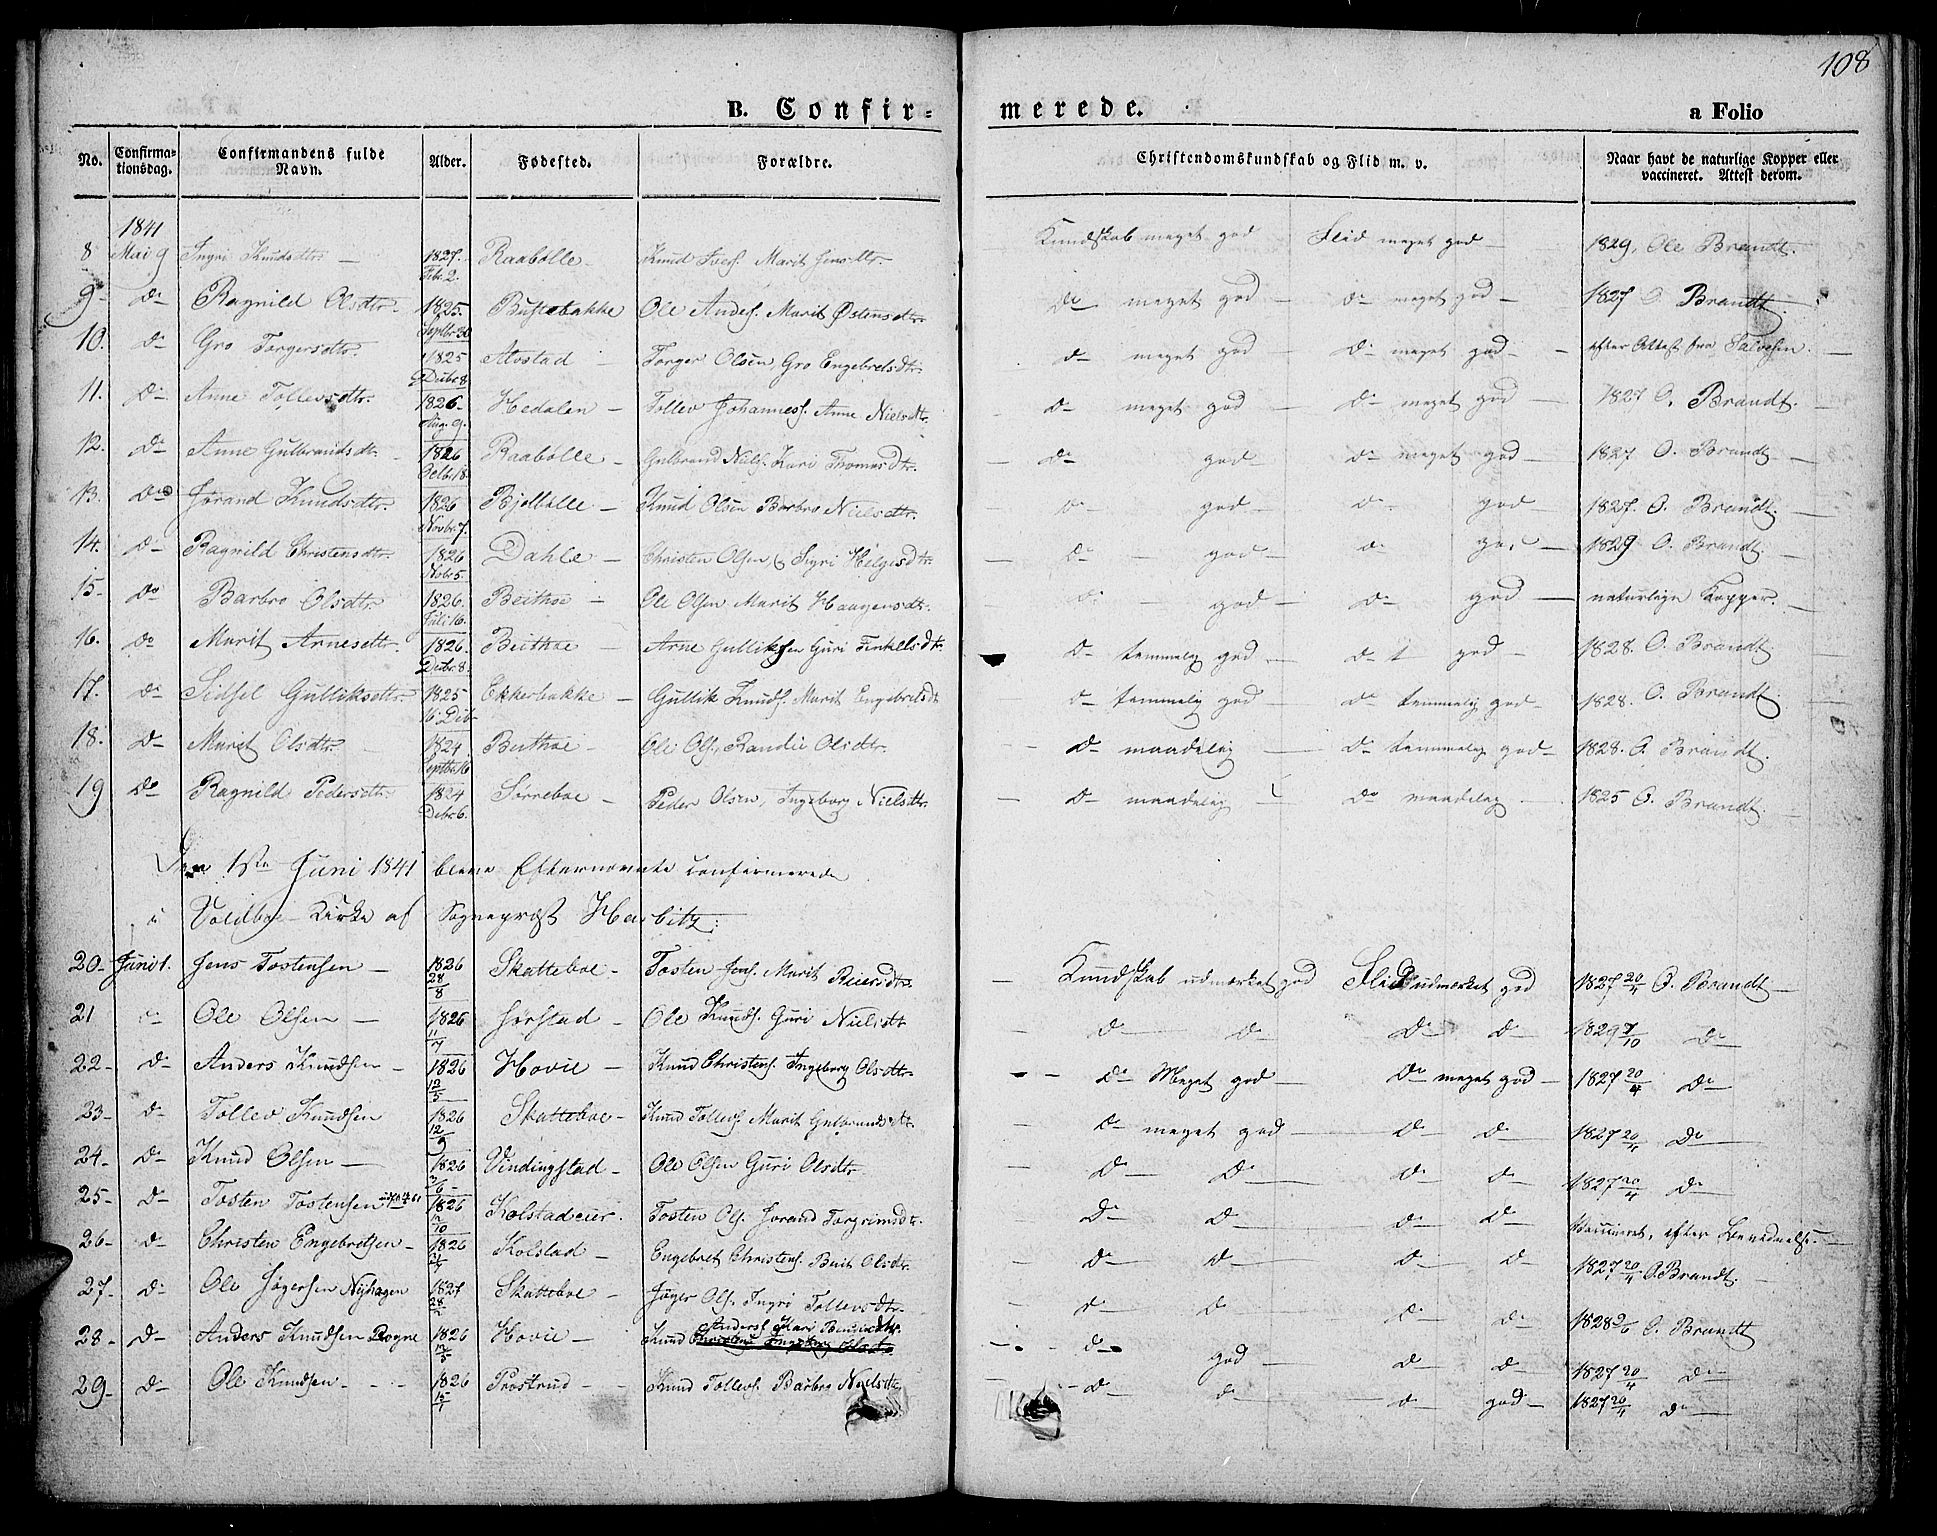 108
B. Confir=
merede.
a Folio
No. Confirma-tionsdag. Confirmandens fulde Navn. Alder. Fødested. Forældre. Christendomskundskab og Flid m. v. Naar havt de naturlige Kopper eller vaccineret. Attest derom.
1841
8 Mai 9 Ingri Knudsdtr. — 1827. Febr 2. Raabølle — Knud Marit Jensdtr. Kundskab meget god Flid meget god — 1829, Ole Brandt.
9 — do Ragnild Olsdtr. 1825. Septbr 30 Bustebakke Ole Anders. Marit Østensdtr. do meget god — do meget god — 1827 O. Brandt.
10. do Gro Torgersdtr. 1825 Decbr 8 Alvstad — Torger Olsen, Gro Engebretsdtr. do meget god do meget god — efter Attest fra Salvesen. —
11. do Anne Tollevsdtr. 1826 — Aug. 9. Hedalen — Tollev Johanness. Anne Nielsdtr. do meget god do meget god — 1827 O. Brandt.
12. do Anne Gulbrandsdtr. 1826 Octbr 18. Raabølle — Gulbrand Niels. Kari Thomasdtr. do god — do meget god — 1827. O. Brandt —
13. do Jørand Knudsdtr. 1826 Novbr 7. Bjelbølle — Knud Olsen Barbro Nielsdtr. do — god — do god 1827. O. Brandt. —
14. do Ragnild Christensdtr. 1826 Dahle — Christen Olsen, Sigri Helgesdtr. do — god — do god — 1829 O. Brandt. —
15 — do Barbro Olsdtr. 1826. Juli 16. Beithoe — Ole Olsen Marit Haagensdtr. do god — do god — naturlige Kopper. —
16. do Marit Arnesdtr. 1826. Decbr 8. Beithoe — Arne Gulliksen Guri Finkelsdtr. do temmelig god — do t god — 1828. O. Brandt
17. do Sidsel Gulliksdtr. 1825 16 Ekkerbakke — Gullik Knuds. Marit Engebretsdtr do temmelig god — do temmelig god — 1828. O. Brandt.
18. do Marit Olsdtr. 1824 Septbr 16 Beithoe — Ole Ols, Randie Olsdtr. do maadelig — do temmelig god — 1828. O. Brandt.
19 do Ragnild Pedersdtr. 1824 Decbr 6. Sørreboe — Peder Olsen, Ingeborg Nielsdtr. do maadelig do maadelig — 1825 O. Brandt.
Den 1ste Juni 1841 bleve Efternævnte confirmerede
i Voldboe Kirke af Sognepræst Harbitz:
20 — Juni 1. Jens Tostensen — 1826 28/8 Skatteboe — Tosten Jens. Marit Reiersdtr. Kundskab udmærket god Flid udmærket god 1827 20/4 O. Brandt —
21 do Ole Olsen — 1826 Sørstad — Ole Knuds. Guri Nielsdtr do do do do 1829 7/10 do
22 — do Anders Knudsen — 1826 12/5 Hovie — Knud Christens. Ingeborg Olsdtr. do Meget god — do meget god — 1827 20/4 do
23 — do Tollev Knudsen 1826 12/9 Skatteboe — Knud Tollevs. Marit Gulbrandsdtr. do meget god — do do 1827 20/4 do
24 — do Knud Olsen — 1826 Vindingstad — Ole Olsen Guri Olsdtr. do do do do 1827 20/4 do
25 — do Tosten Tostensen 1826 Kolstadeier. Tosten Ols. Jorand Torgrimsdtr. do do do do Vaccineret, efter Benedmelse.
26 — do Christen Engebretsen — 1826 Kolstad — Engebret Christens. Berit Olsdtr. do do do do 1827 20/4 O. Brandt.
27 — do Ole Jøgersen Nyhagen 1827 Skatteboe — Jøger Ols. Ingri Tollevsdtr. do do do do 1828 O. Brandt
28 — do Anders Knudsen Rogne 1826 12/5 Hovie — Knud Anders. Kari do god — do do 1827 20/4 do
29 — do Ole Knudsen — 1826 Prostrud — Knud Tollevs. Barbro Nielsdtr. do do do god — 1827 20/4 do